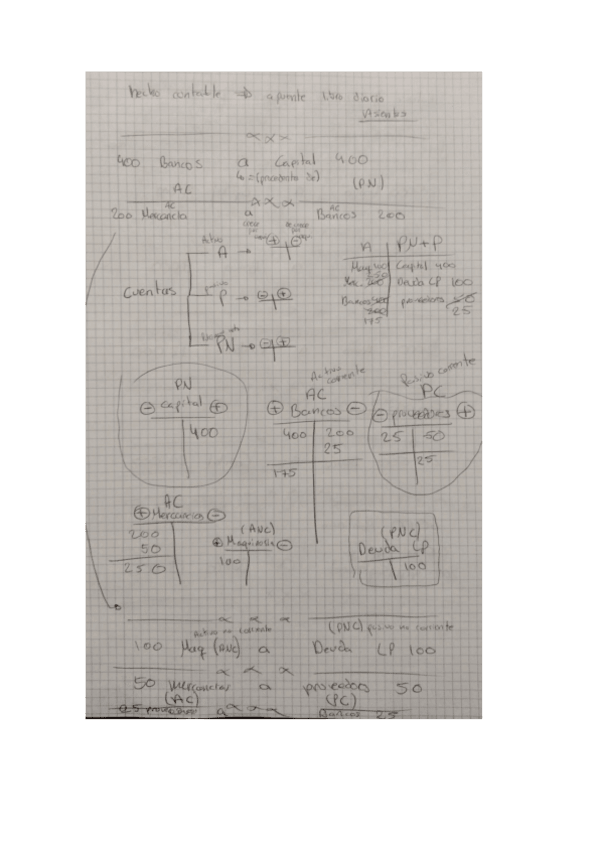 hecho contable ⇒ apunte libro diario
Asientos
x x x
400 Bancos a Capital 400
AC (procedente de) (PN)
x x x
200 Mercancía a Bancos 200
AC
Activo
A → ⊕ ⊖
Cuentas P → ⊖ ⊕
PN → ⊖ ⊕
A PN+P
Maq Capital 400
Deuda CP 100
Bancos proveedores 50
175 25
PN
⊖ Capital ⊕
400
Activo corriente
AC
⊕ Bancos ⊖
400 200
25
175
Pasivo corriente
PC
⊖ proveedores ⊕
25 50
25
AC
⊕ Mercancías ⊖
200
50
250
(ANC)
⊕ Maquinaria ⊖
100
(PNC)
Deuda LP
100
x x x
Activo no corriente (PNC) pasivo no corriente
100 Maq (ANC) a Deuda LP 100
x x x
50 mercancías a proveedores 50
(AC) (PC)
25 proveedores a Bancos 25